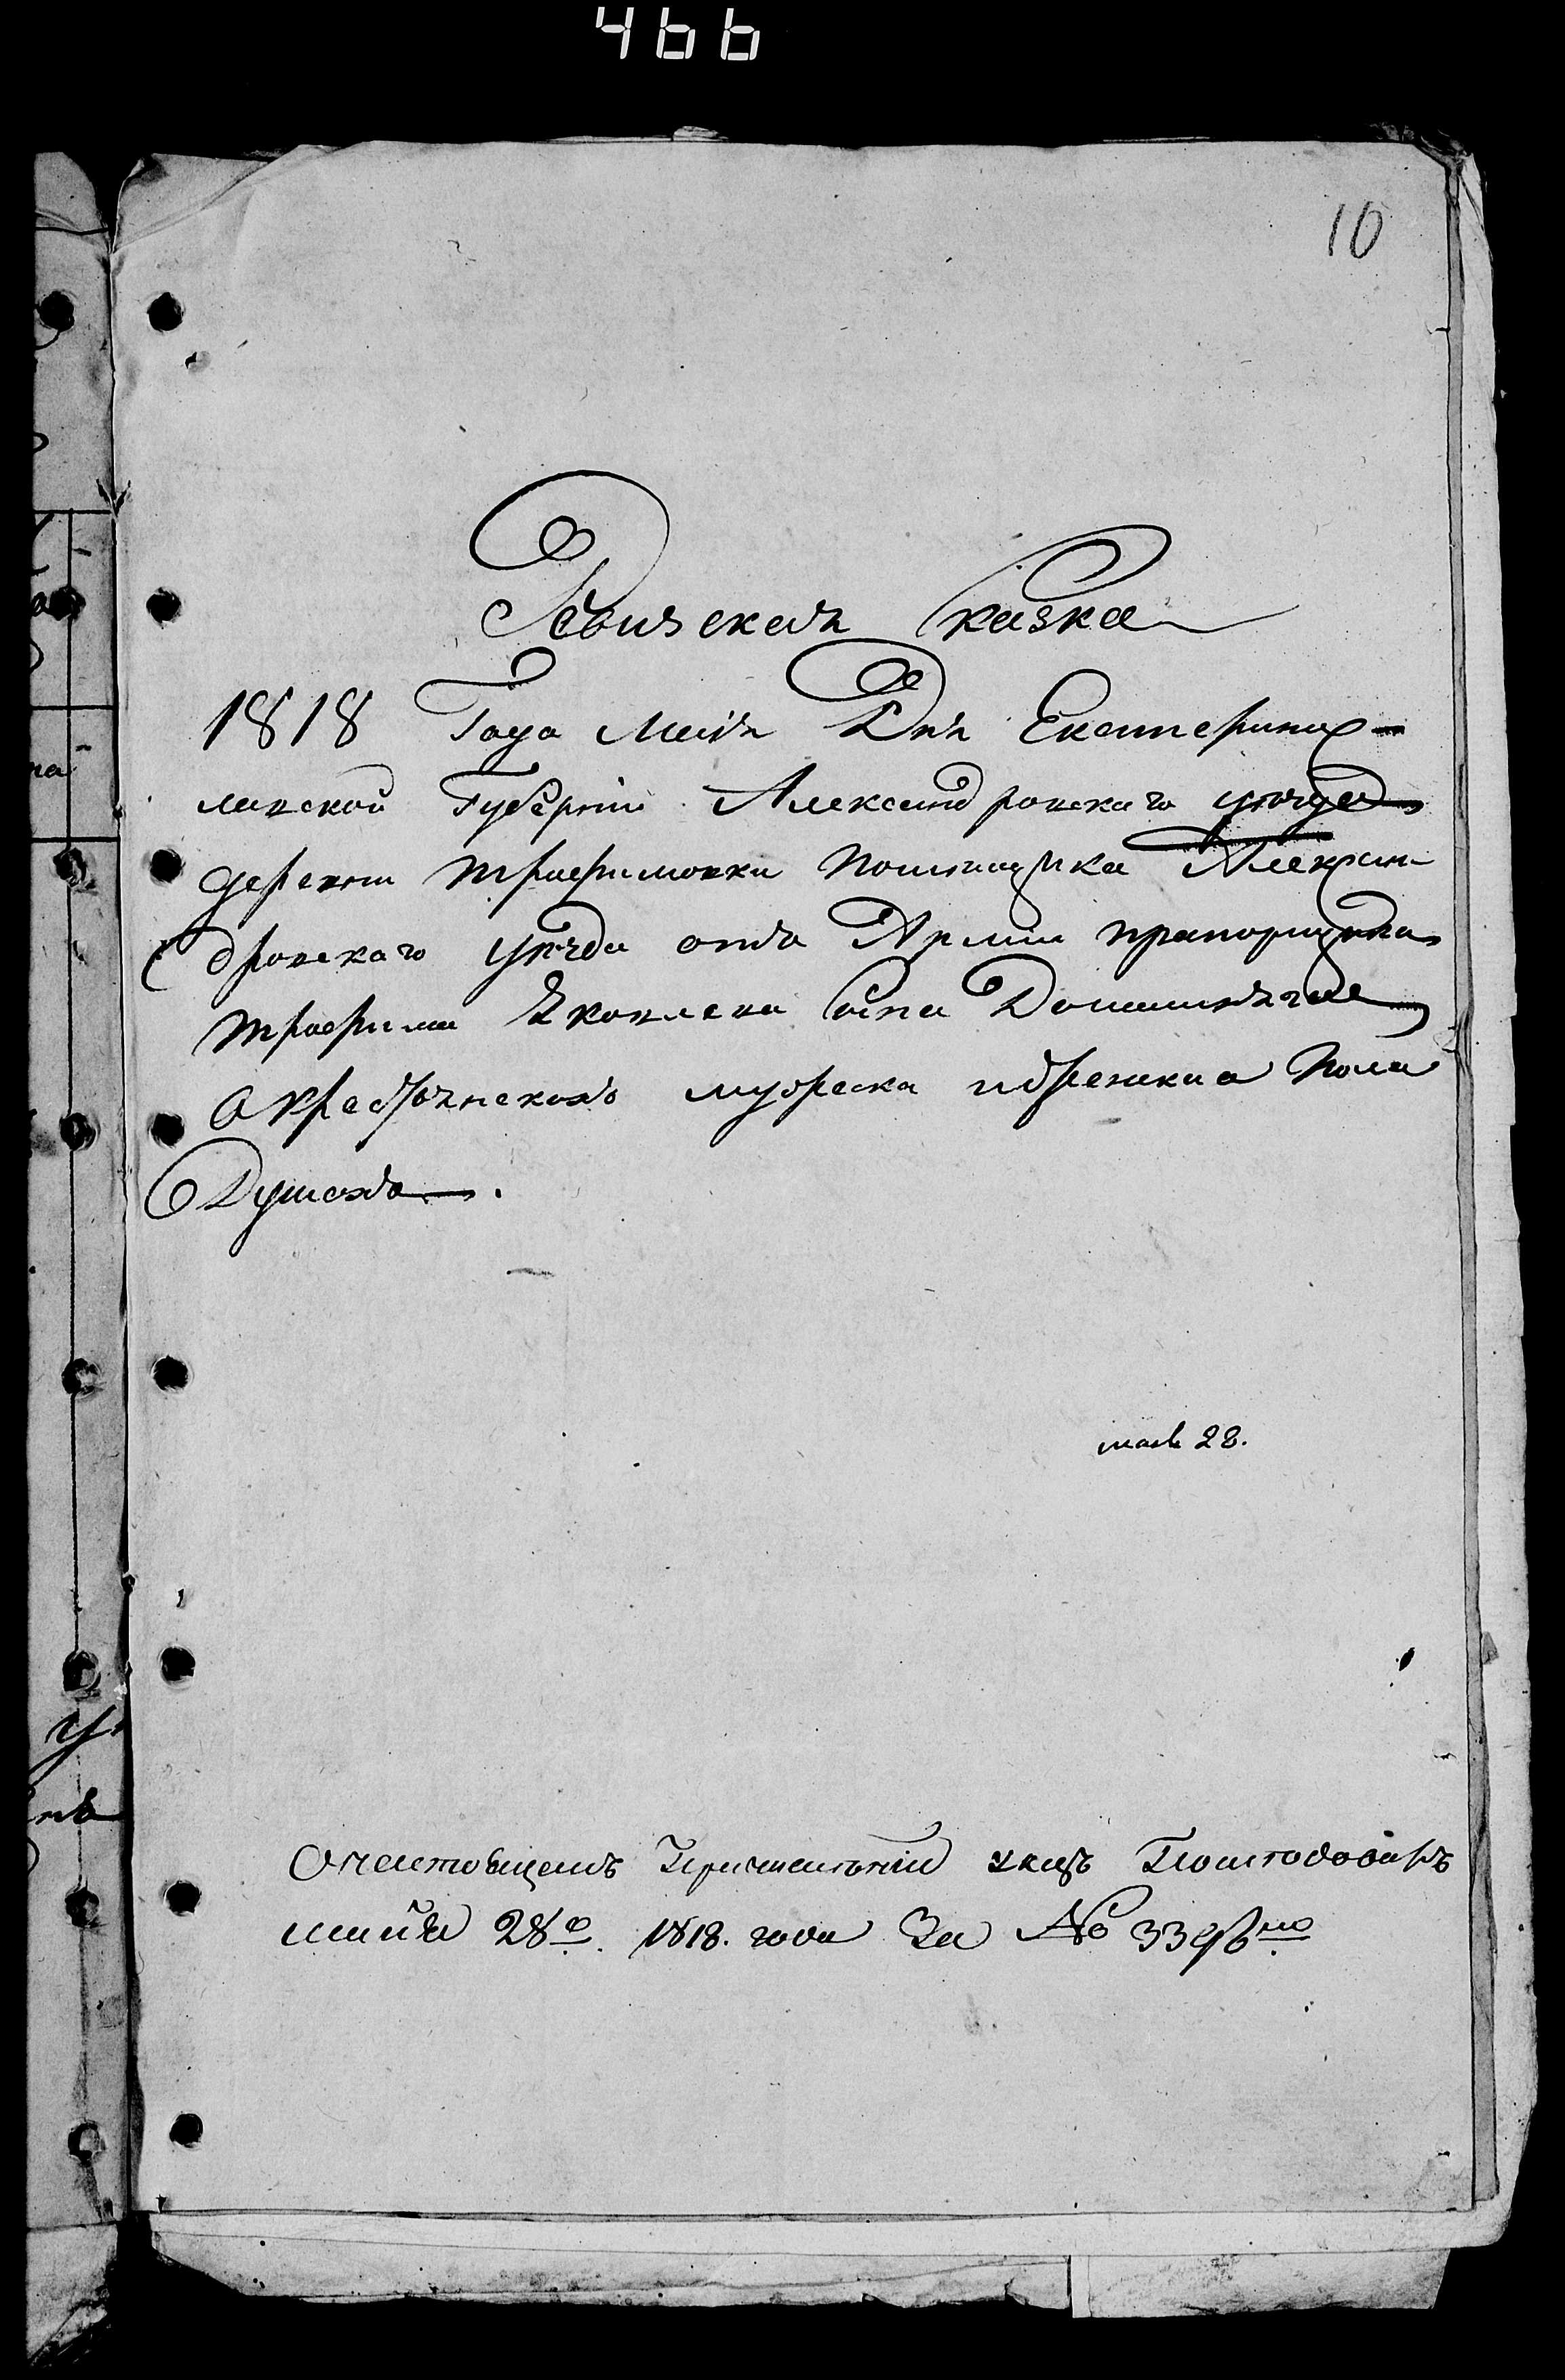 466
10
Ревизская Сказка
1818 Года Маія Дня Екатеринос-
лавской Губерніи Александровскаго уезда
деревни Трофимовки помещика Алексан-
дровскаго уезда отъ Арміи прапорщика
Трофима Яковлева сына
О крестьянскахъ мужеска и женска пола
Душахъ.
маія 28.
О семъ
маія 28го. 1818. года За №